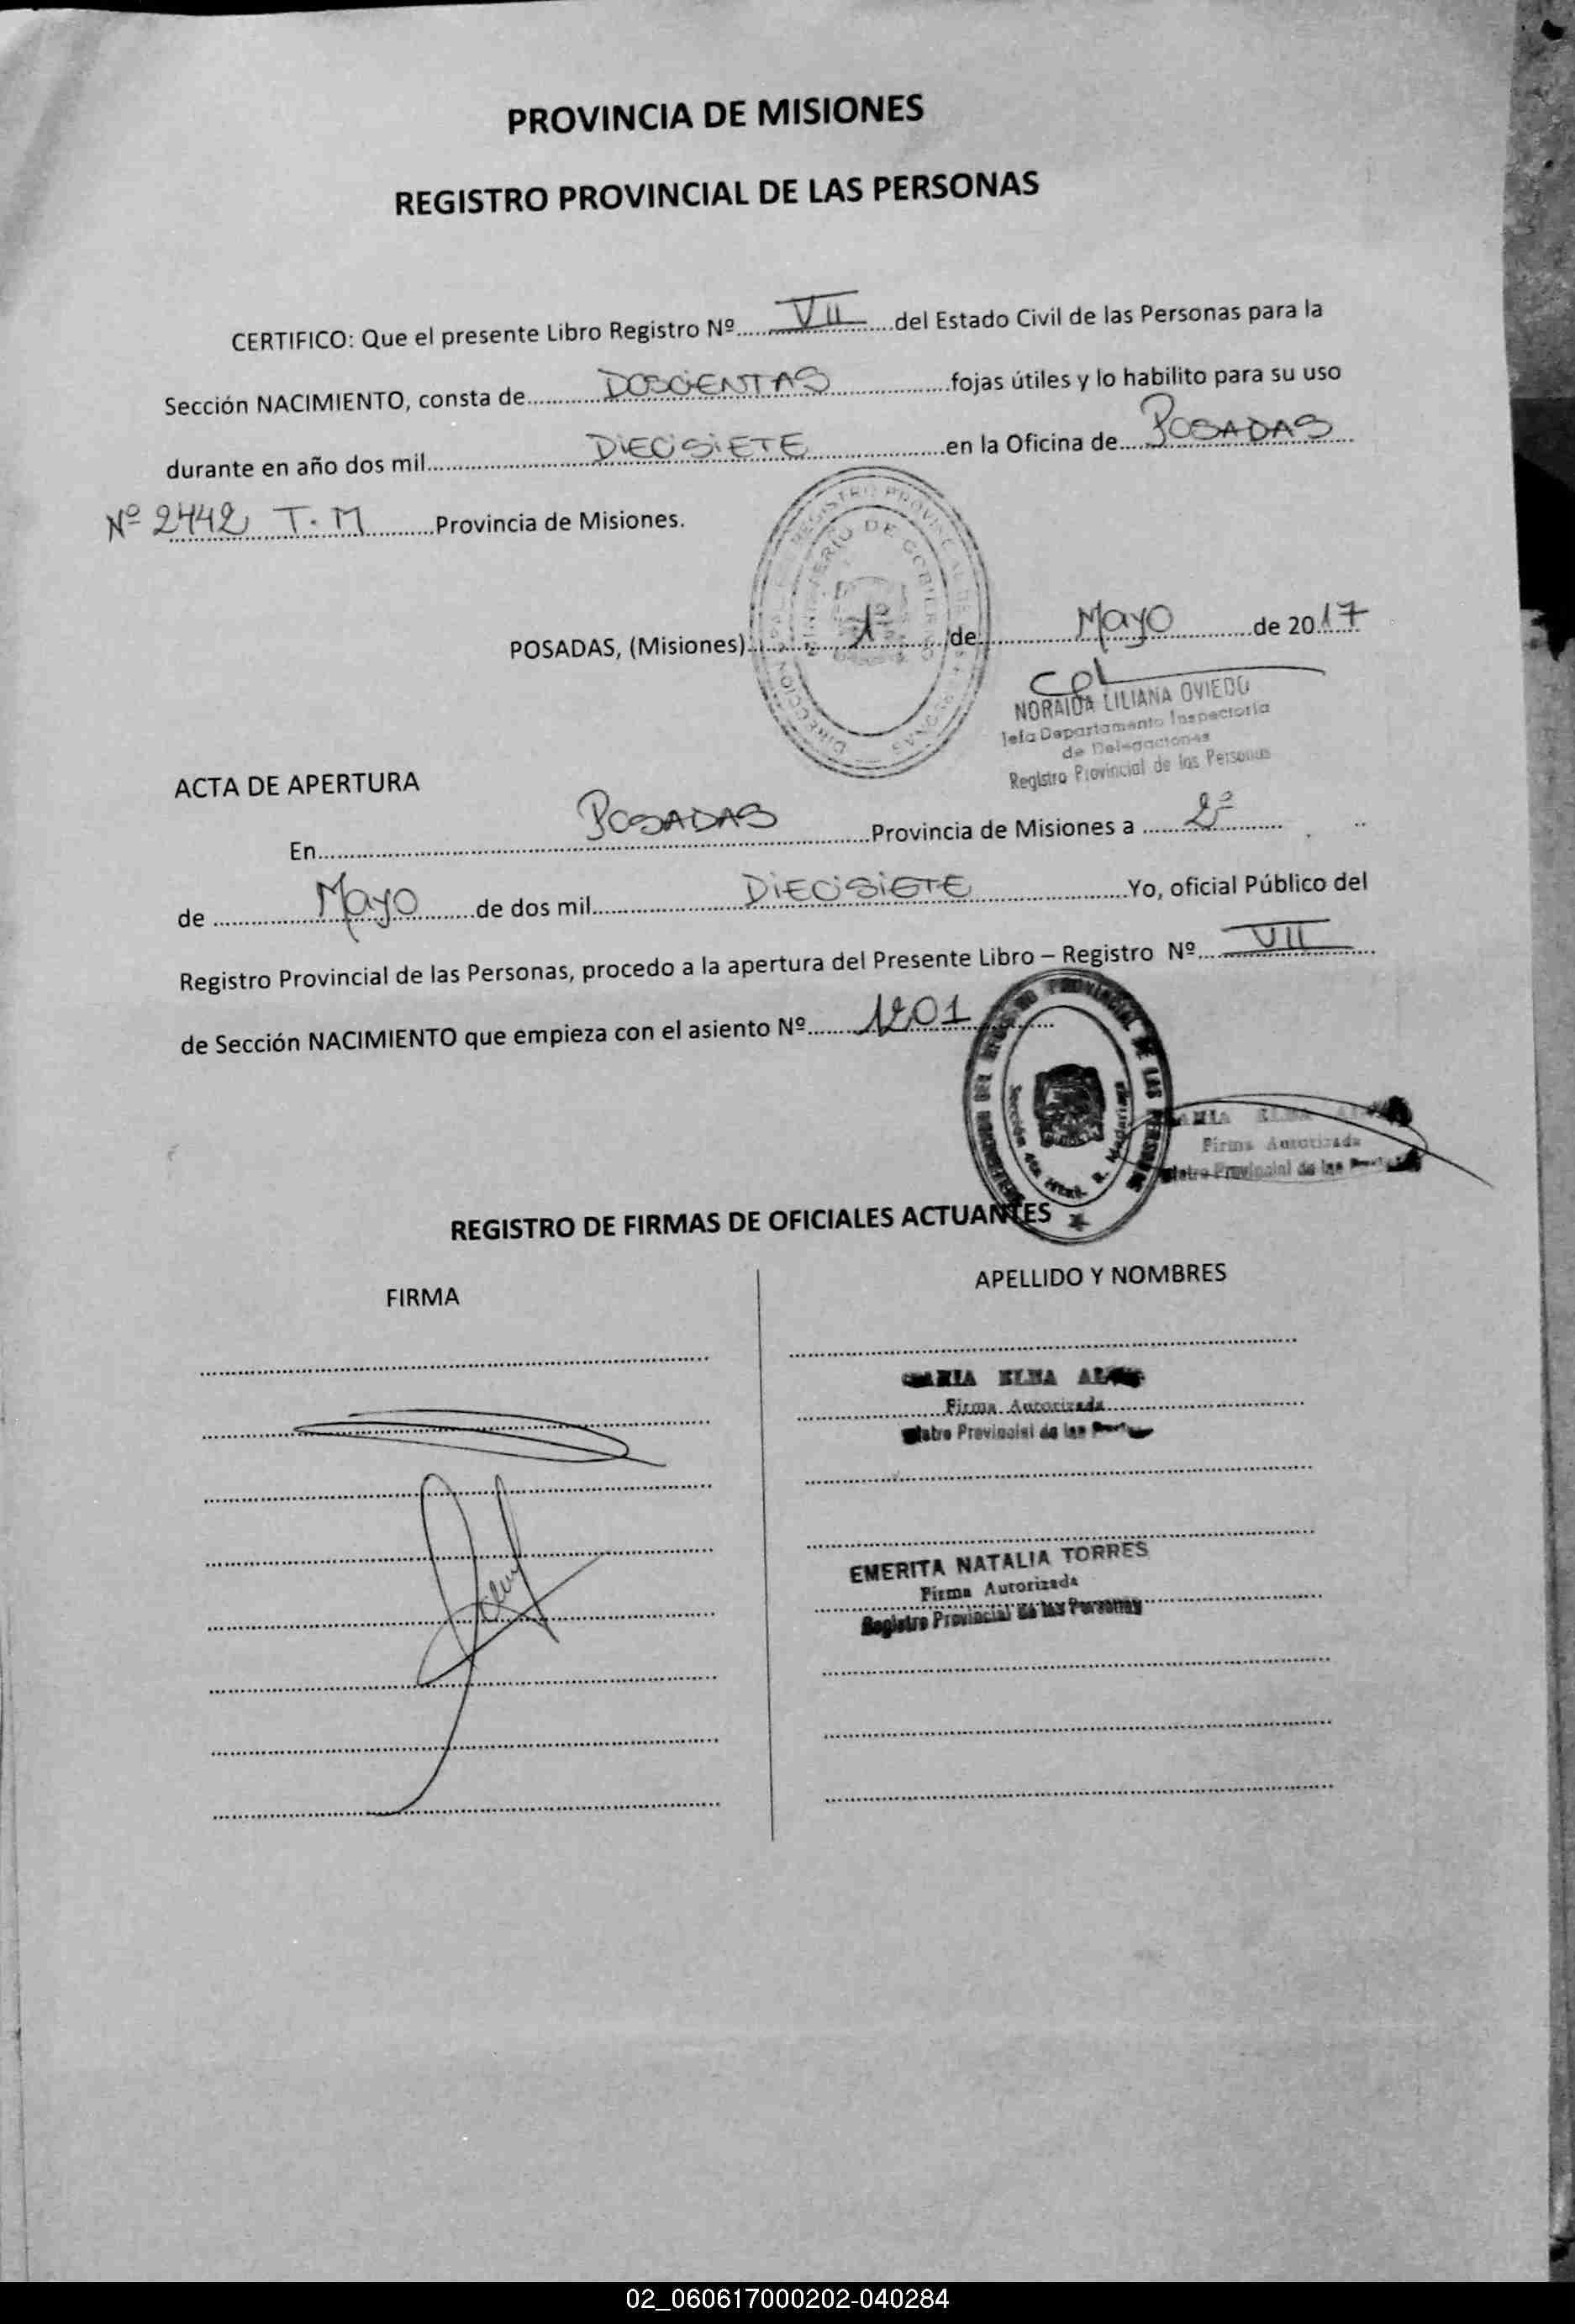 PROVINCIA DE MISIONES
REGISTRO PROVINCIAL DE LAS PERSONAS
CERTIFICO: Que el presente Libro Registro Nº VII del Estado Civil de las Personas para la
Sección NACIMIENTO, consta de DOSCIENTAS fojas útiles y lo habilito para su uso
durante en año dos mil DIECISIETE en la Oficina de POSADAS
Nº 2442 T.M Provincia de Misiones.
POSADAS, (Misiones) 1º de Mayo de 2017
NORAIDA LILIANA OVIEDO
Jefa Departamento Inspectoria
de Delegaciones
Registro Provincial de las Personas
ACTA DE APERTURA
En POSADAS Provincia de Misiones a 2º
de Mayo de dos mil DIECISIETE Yo, oficial Público del
Registro Provincial de las Personas, procedo a la apertura del Presente Libro – Registro Nº VII
de Sección NACIMIENTO que empieza con el asiento Nº 1201
Firma Autorizada
Provincial de las
REGISTRO DE FIRMAS DE OFICIALES ACTUANTES
FIRMA
APELLIDO Y NOMBRES
MARIA ELNA
Firma Autorizada
Provincial de las
EMERITA NATALIA TORRES
Firma Autorizada
Registro Provincial de las Personas
02_060617000202-040284